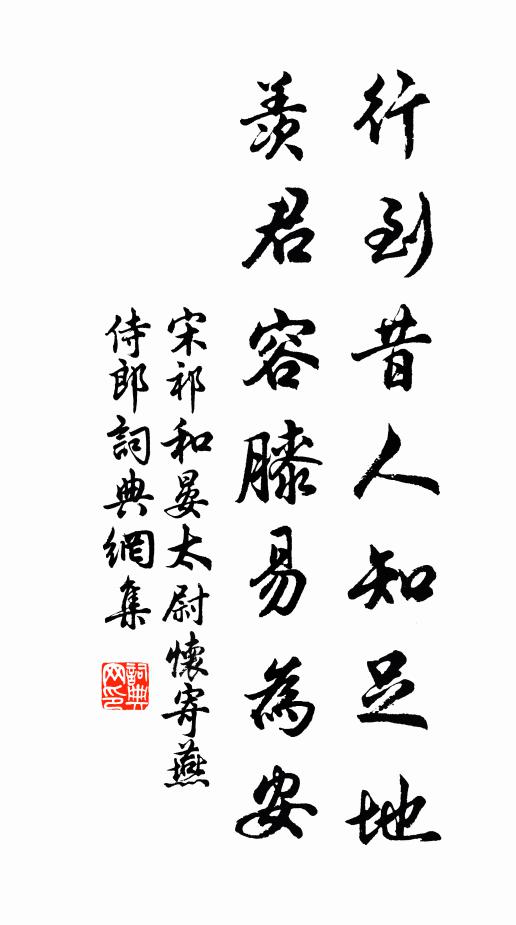 行到昔人知足地
羨君容膝易為安
宋祁和晏太尉懷寄燕
侍郎詞典網集
詞典网印